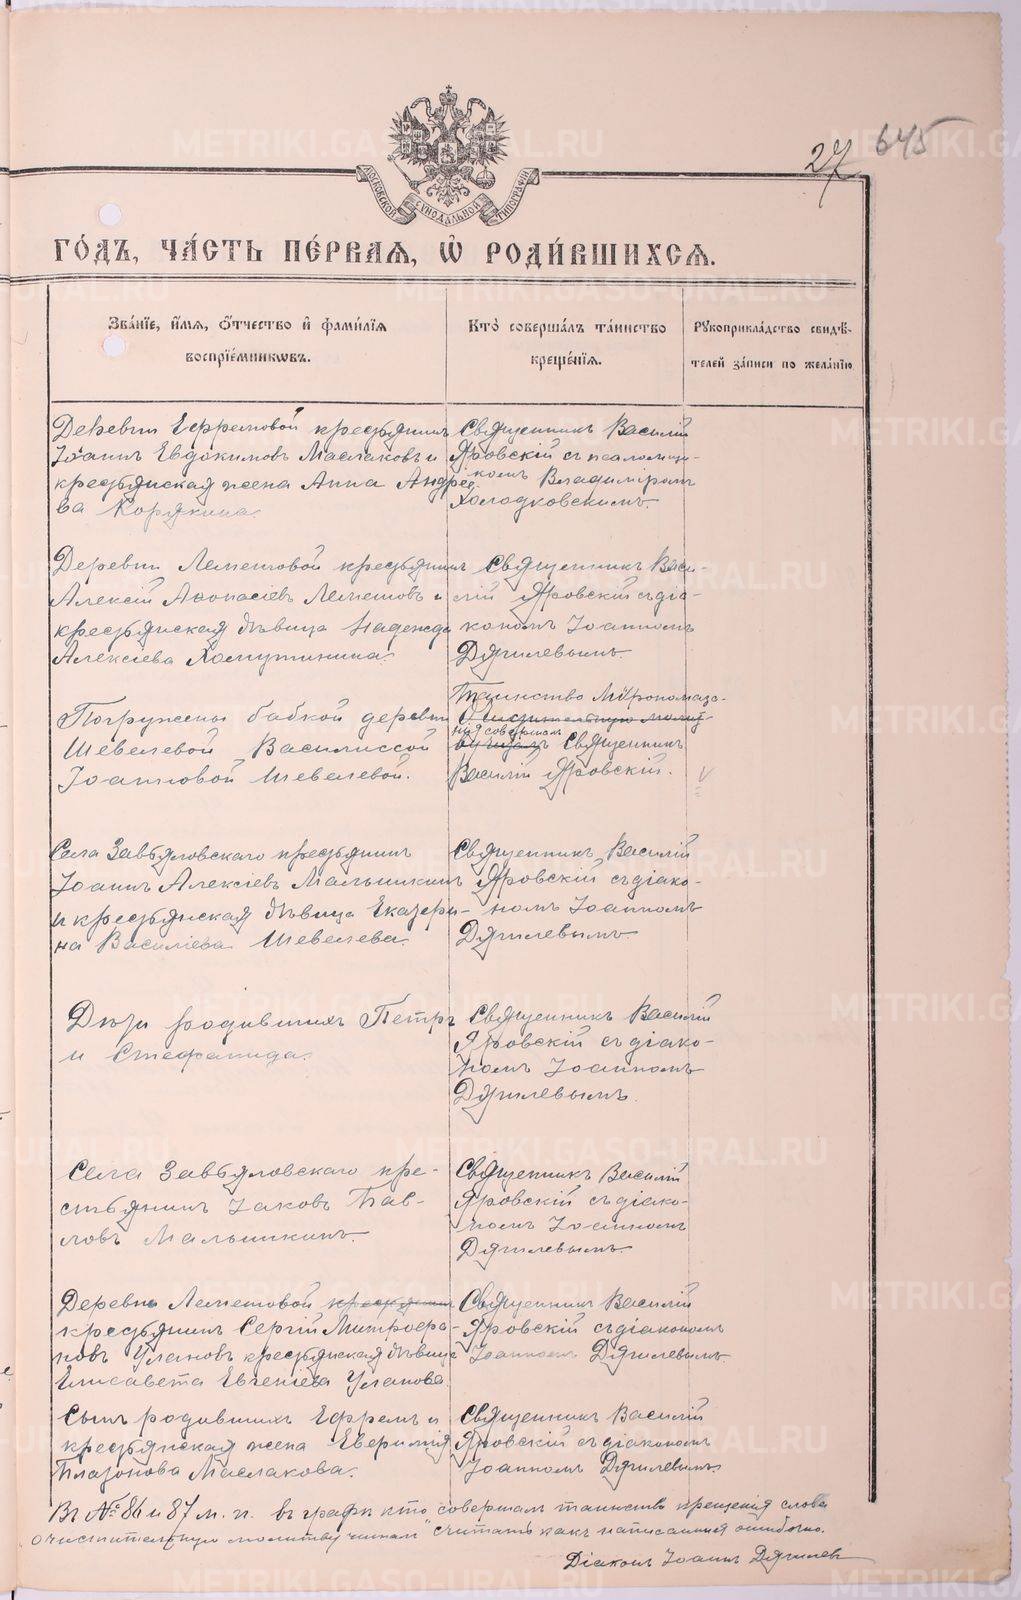 27 645
МОСКОВСКОЙ СѴНОДАЛЬНОЙ ТИПОГРАФІИ
ГО́ДЪ, ЧА́СТЬ ПЕ́РВАѦ, Ѡ҆ РОДИ́ВШИХСѦ.
Зва́нїе, и҆́мѧ, ѻ҆́тчество и҆ фами́лїѧ
воспрїе́мникѡвъ.
Кто̀ соверша́лъ та́инство
креще́нїѧ.
Рꙋкоприкла́дство свидѣ́-
телей за́писи по жела́нїю
Деревни Ефремовой крестьянинъ
Іоаннъ Евдокимовъ Маслаковъ и
крестьянская жена Анна Андрее-
ва Корякина.
Священникъ Василій
Яровскій съ псаломщи-
комъ Владиміромъ
Холодковскимъ.
Деревни Леметовой крестьянинъ
Алексій Аѳонасіевъ Леметовъ и
крестьянская дѣвица Надежда
Алексіева Хомутинина.
Священникъ Васи-
лій Яровскій съ діа-
кономъ Іоанномъ
Дягилевымъ.
Погружены бабкой деревни
Шевелевой Василиссой
Іоанновой Шевелевой.
Таинство Мѵропомаза-
Очистительную молит-
нія совершилъ
ву читалъ Священникъ
Василій Яровскій.
Села Завьяловскаго крестьянинъ
Іоаннъ Алексіевъ Мальчикинъ
и крестьянская дѣвица Екатери-
на Василіева Шевелева.
Священникъ Василій
Яровскій съ діако-
номъ Іоанномъ
Дягилевымъ.
Дѣти родившихъ Петръ
и Стефанида.
Священникъ Василій
Яровскій съ діако-
номъ Іоанномъ
Дягилевымъ.
Села Завьяловскаго кре-
стьянинъ Іаковъ Пав-
ловъ Мальчикинъ.
Священникъ Василій
Яровскій съ діако-
номъ Іоанномъ
Дягилевымъ.
Деревни Леметовой крестьянинъ
крестьянинъ Сергій Митрофа-
новъ Улановъ крестьянская дѣвица
Елисавета Евгеніева Уланова.
Священникъ Василій
Яровскій съ діакономъ
Іоанномъ Дягилевымъ.
Сынъ родившихъ Ефремъ и
крестьянская жена Евфимія
Платонова Маслакова.
Священникъ Василій
Яровскій съ діакономъ
Іоанномъ Дягилевымъ.
Въ № 86 и 87 м. п. въ графѣ кто совершалъ таинство крещенія слова
„очистительную молитву читалъ" считать какъ написанныя ошибочно.
Діаконъ Іоаннъ Дягилевъ